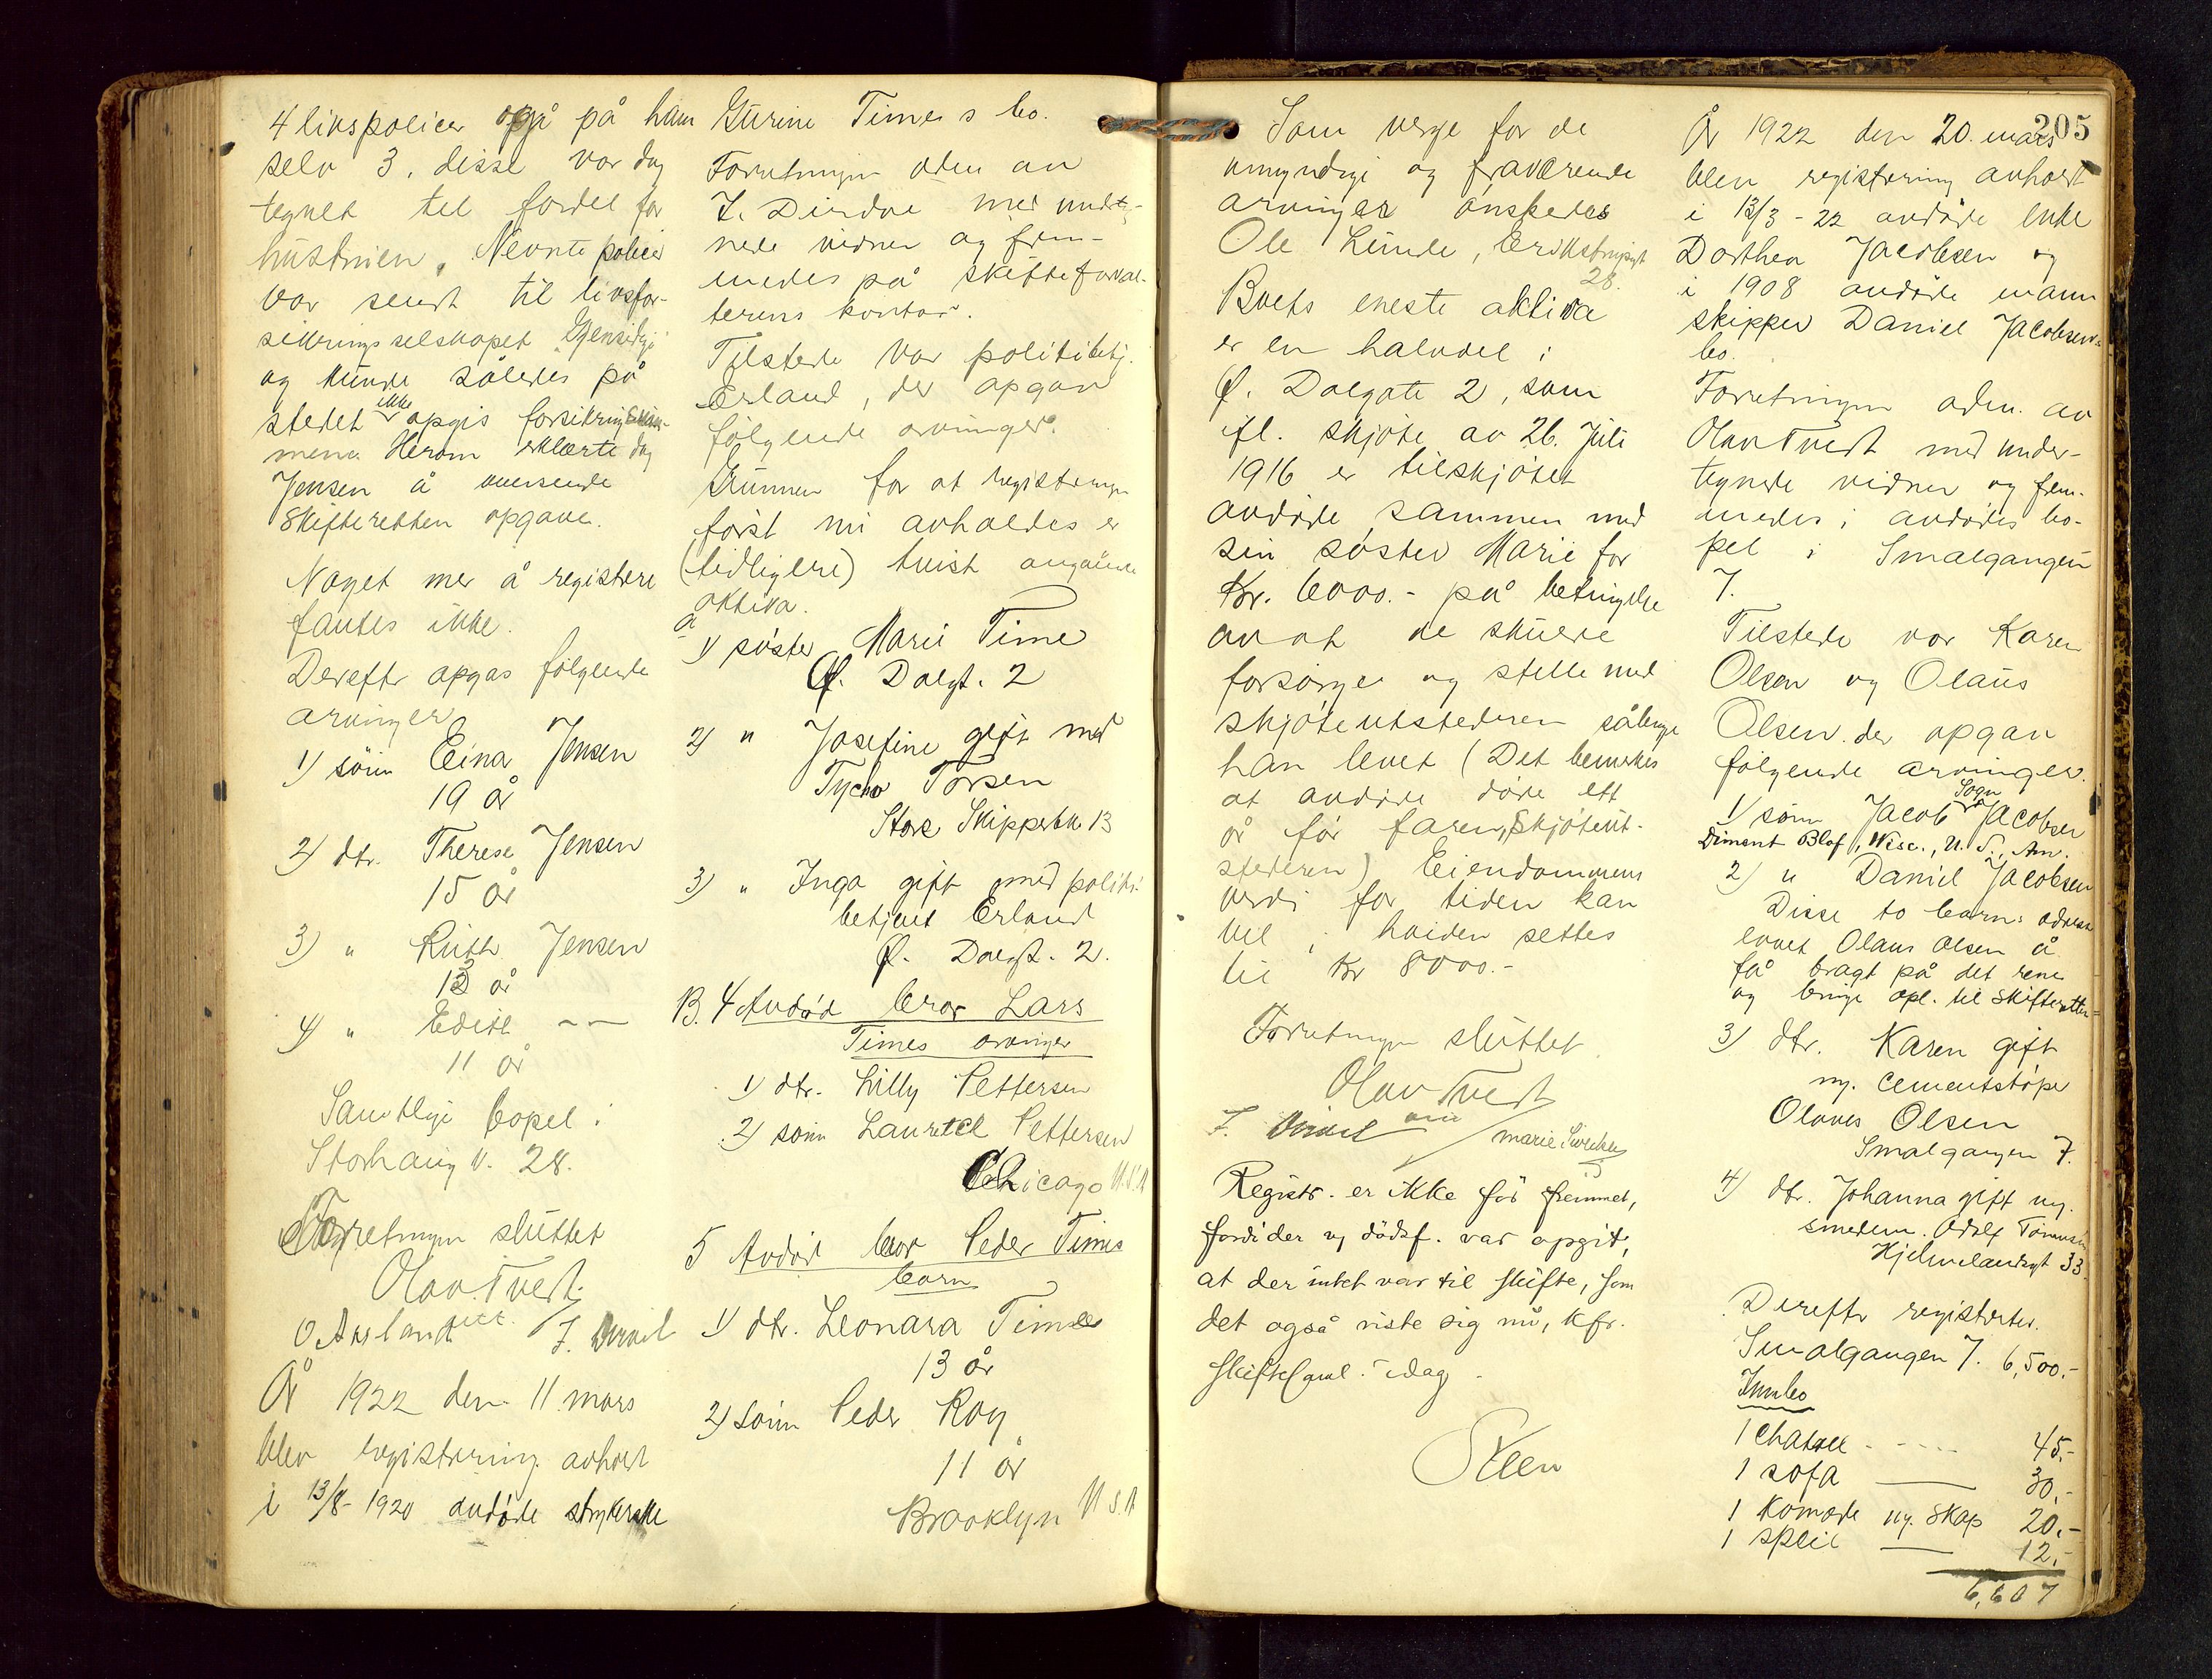 4 livspolicer også på ham
selv 3. disse var dog
tegnet til fordel for
hustruen. Nevnte policer
var sendt til livsfor-
sikringsselskapet Gjensidige
og kunde således på
stedet ikke opgis forsikringssum-
mene. Herom erklærte dog
Jensen å oversende
Skifteretten opgave.
Noget mer å registrere
fantes ikke.
Derefter opgas følgende
arvinger
1) sønn Einar Jensen
19 år
2) dtr. Therese Jensen
15 år
3) " Ruth Jensen
13 år
4) " Edith — —
11 år
Samtlige bopel i
Storhaug v. 28.
Forretningen sluttet
Olav Tvedt
O Aarland
År 1922 den 11 mars
blev registrering avholdt
i 13/8-1920 avdøde strykerske
Gurine Times bo.
Forretningen adm av
med undt-
nede vidner og frem-
medes på skifteforval-
terens kontor.
Tilstede var politibetj.
Erland, der opgav
følgende arvinger.
Grunnen for at registreringen
først nu avholdes er
(tidligere) tvist angående
aktiva.
a
1) søster Marie Time
Ø. Dalgt. 2
2) " Josefine gift med
Tycho Torsen
Store Skipperbk 13
3) " Inga gift med politi-
betjent Erland
Ø. Dalgt. 2.
B. 4 Avdød bror Lars
Times arvinger
1) dtr. Lilly Pettersen
2) sønn Pettersen
Chicago U.S.A
5 Avdød bror Peder Times
barn
1) dtr. Leonara Time
13 år
2) sønn Peder Roy
11 år
Brooklyn U.S.A
Som verge for de
umyndige og fraværende
arvinger ønskedes
Ole Lunde, Erikstrupgt
28.
Boets eneste aktiva
er en halvdel i
Ø. Dalgate 2, som
ifl. skjøte av 26. Juli
1916 er tilskjøtet
avdøde sammen med
sin søster Marie for
Kr. 6000.- på betingelse
av at de skulde
forsørge og stelle med
skjøteutstederen sålenge
han levet (Det bemerkes
at avdøde døde ett
år før faren, skjøteut-
stederen) Eiendommens
verdi for tiden kan
vel i høiden settes
til Kr 8000.-
Forretningen sluttet
Olav Tvedt
Registr. er ikke før fremmet,
fordi der vg dødsf. var opgit,
at der intet var til skifte, som
det også viste sig nu, kfr.
skiftesaml. idag.
Steen
205
År 1922 den 20. mars
blev registrering avholdt
i 13/3-22 avdøde enke
Dorthea Jacobsen og
i 1908 avdøde mann
skipper Daniel Jacobsens
bo.
Forretningen adm. av
Olav Tvedt med under-
tegnede vidner og frem-
medes i avdødes bo-
pel i Smalgangen
7.
Tilstede var Karen
Olsen og Olaus
Olsen der opgav
følgende arvinger.
1) sønn Jacob Sogn Jacobsen
Diment Blof, Wisc., U. S. Am.
2) " Daniel Jacobsen
Disse to barns adresse
lovet Olaus Olsen å
få bragt på det rene
og bringe opl. til Skifteretten
3) dtr. Karen gift
m. cementstøper
Olaves Olsen
Smalgangen 7.
4) dtr. Johanna gift m.
smedem. Adolf
Hjelmelandsgt 33
Derefter registrertes.
Smalgangen 7. 6,500.-
Innbo
1 chatoll - - - - 45.-
1 sofa — 30.-
1 Komode m. skap 20.-
1 speil — 12.-
6,607